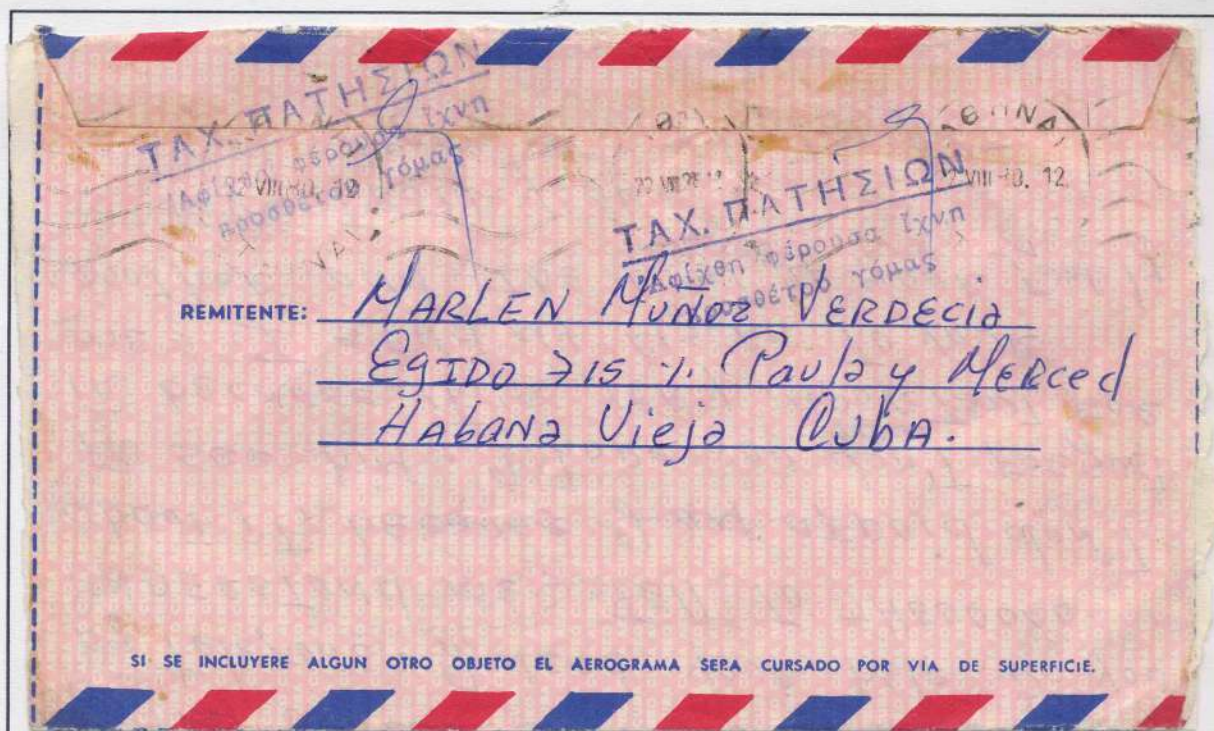 ΤΑΧ. ΠΑΤΗΣΙΩΝ
Ἀφίχθη φέρουσα ἴχνη
προσθέτου γόμας
22 VIII 80. 12
ΑΘΗΝΑΙ
ΤΑΧ. ΠΑΤΗΣΙΩΝ
Ἀφίχθη φέρουσα ἴχνη
προσθέτου γόμας
REMITENTE: MARLEN MUÑOZ VERDECIA
EGIDO 715 %. Paula y MERCed
HAbANa Vieja CubA.
SI SE INCLUYERE ALGUN OTRO OBJETO EL AEROGRAMA SERA CURSADO POR VIA DE SUPERFICIE.